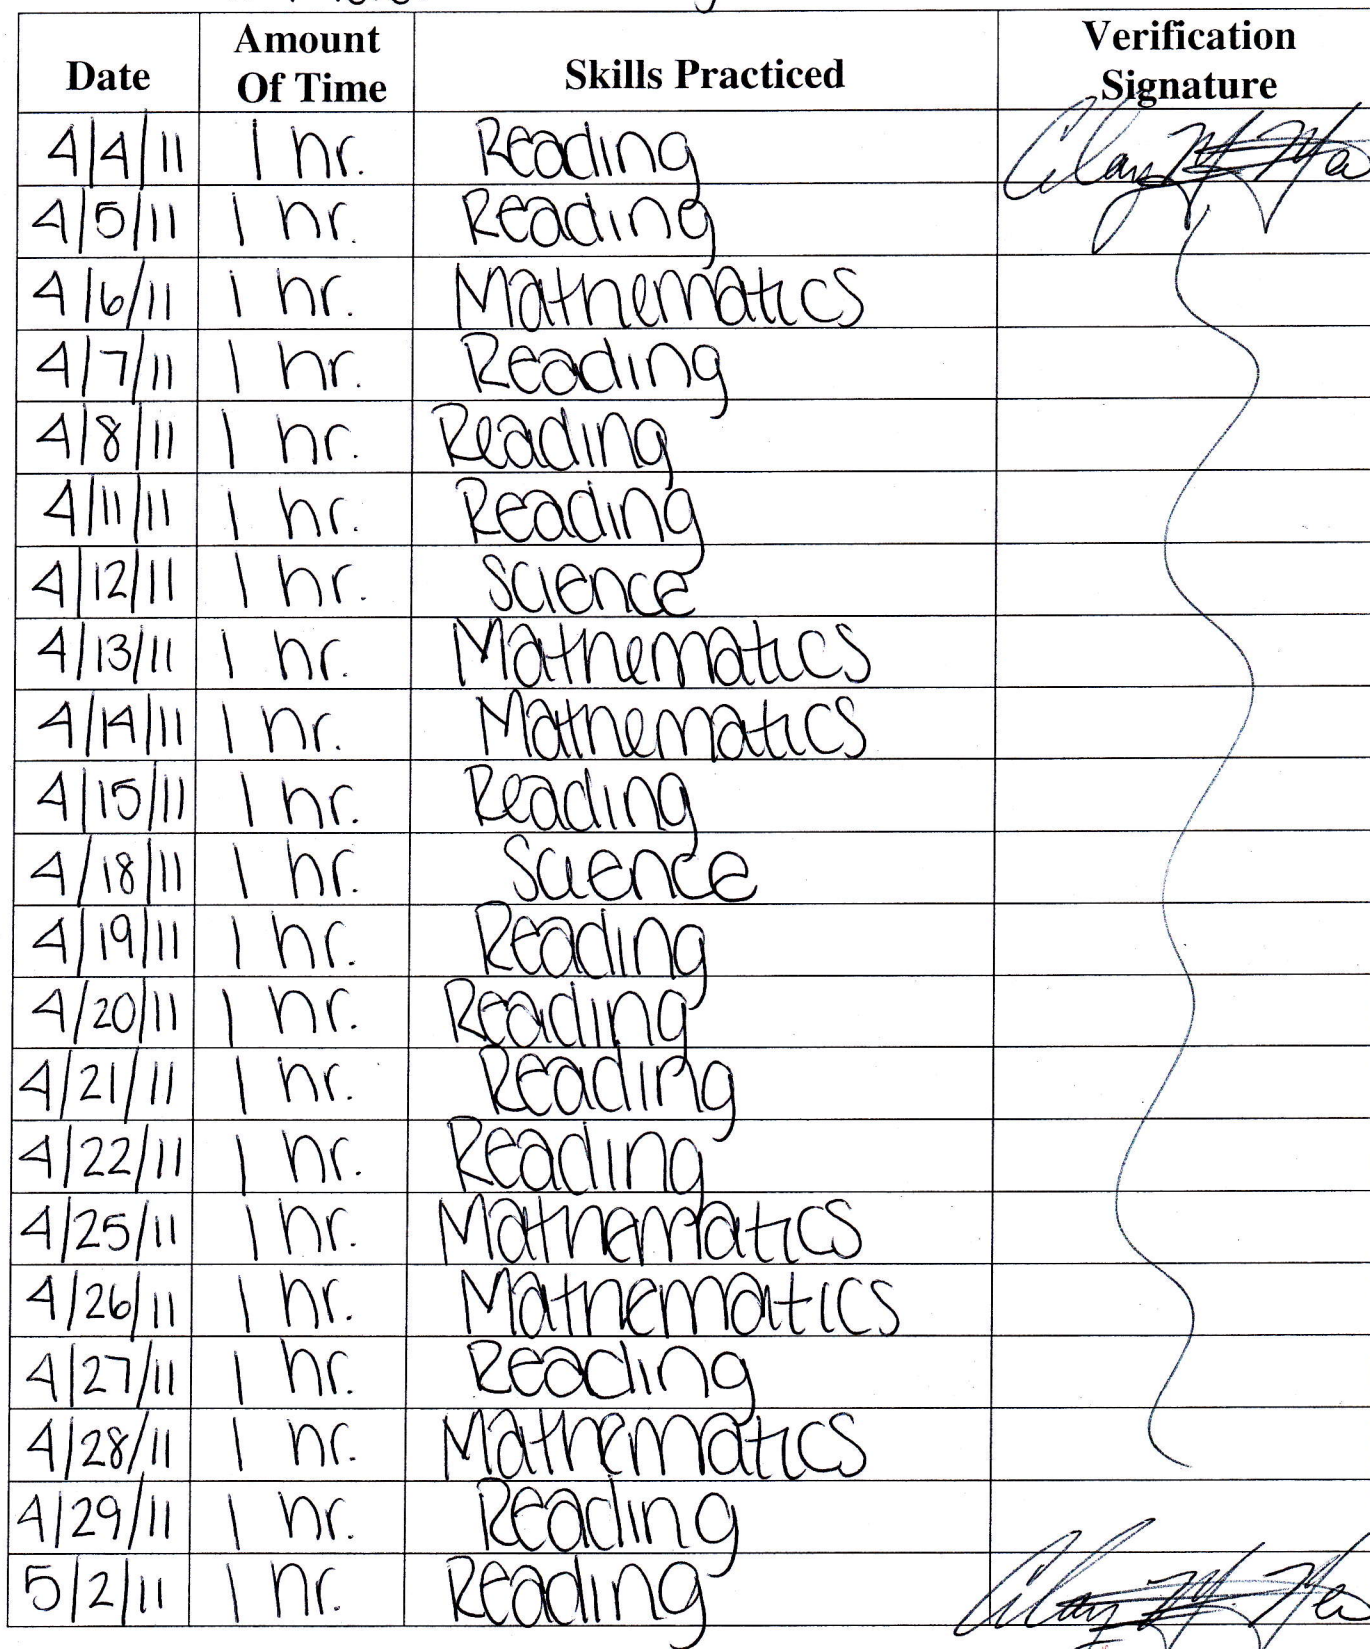 Date Amount Of Time Skills Practiced Verification Signature
4/4/11 1 hr. Reading Clay
4/5/11 1 hr. Reading
4/6/11 1 hr. Mathematics
4/7/11 1 hr. Reading
4/8/11 1 hr. Reading
4/11/11 1 hr. Reading
4/12/11 1 hr. Science
4/13/11 1 hr. Mathematics
4/14/11 1 hr. Mathematics
4/15/11 1 hr. Reading
4/18/11 1 hr. Science
4/19/11 1 hr. Reading
4/20/11 1 hr. Reading
4/21/11 1 hr. Reading
4/22/11 1 hr. Reading
4/25/11 1 hr. Mathematics
4/26/11 1 hr. Mathematics
4/27/11 1 hr. Reading
4/28/11 1 hr. Mathematics
4/29/11 1 hr. Reading
5/2/11 1 hr. Reading Clay